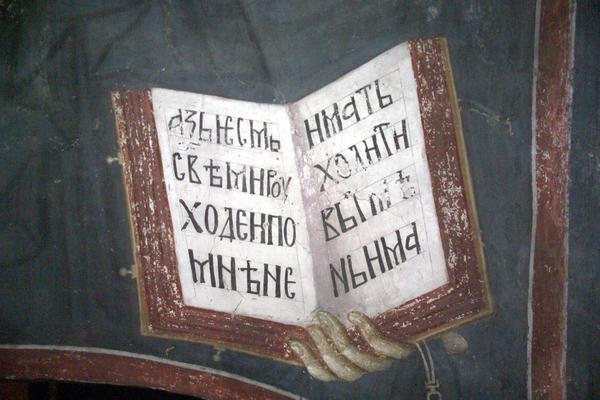 АЗЬѤСМЬ
СВѢМИРОУ
ХОДЕИПО
МНѢНЕ
ИМАТЬ
ХОДИТИ
ВЬТМѢ
НЬИМА